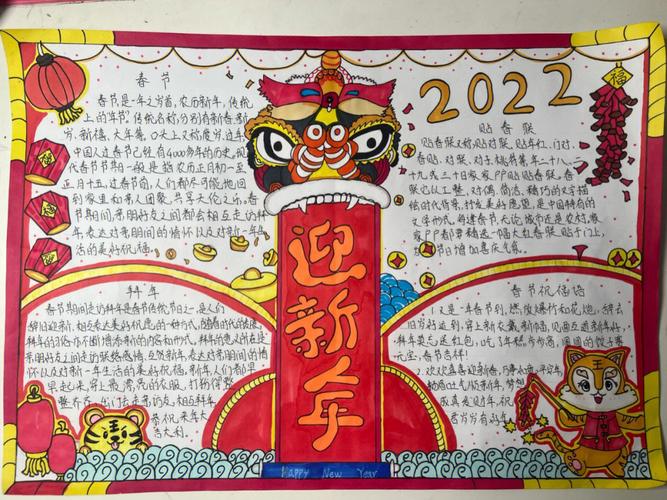 春节
春节是一年之岁首,农历新年,传统
上的年节。传统名称,分别有新春、新
岁、新禧、大年等,口头上又称度岁、过年。
中国人过春节已经有4000多年的历史。现
代春节节期一般是指农历正月初一至
正月十五。过春节前,人们都尽可能地回
到家里和亲人团聚,共享天伦之乐。春
节期间,亲朋好友之间都会相互走访拜
年,表达对亲朋间的情怀以及对新一年生
活的美好祝福。
2022
福
贴春联
贴春联又称贴对联,贴年红、门对、
春贴、对联、对子
二十八、二
十九或三十日家家户户贴
春联
它以工整、对偶、简洁、精巧的文字描
绘时代背景,抒发美好愿望,是中国特有的
文学形式。每逢春节,无论城市还是农村,家
家户户都要精选一幅大红春联贴于门上,
为节日增加喜庆气氛。
迎新年
拜年
春节期间走访拜年是春节传统节日之一,是人们
辞旧迎新、相互表达美好祝愿的一种方式。随着时代的发展,
拜年的习俗亦不断增添新的内容和形式。拜年的意义所在是
亲朋好友之间走访联络感情、互贺新年,表达对亲朋间的情
怀以及对新一年生活的美好祝福。新年,人们都早
早起来,穿上最漂亮的衣服,打扮得整
整齐齐,出门去走亲访友,相互拜年,
恭祝来年大
吉大利。
春节祝福语
1、又是一年春节到,燃放爆竹和花炮,辞去
旧岁好运到,穿上新衣戴新帽,见面互道新年好,
拜年莫忘送红包,吃了年糕
步步高,团圆的饺子赛
元宝,春节吉祥!
2、欢欢喜喜迎新春,万事如意
王
Happy New Year